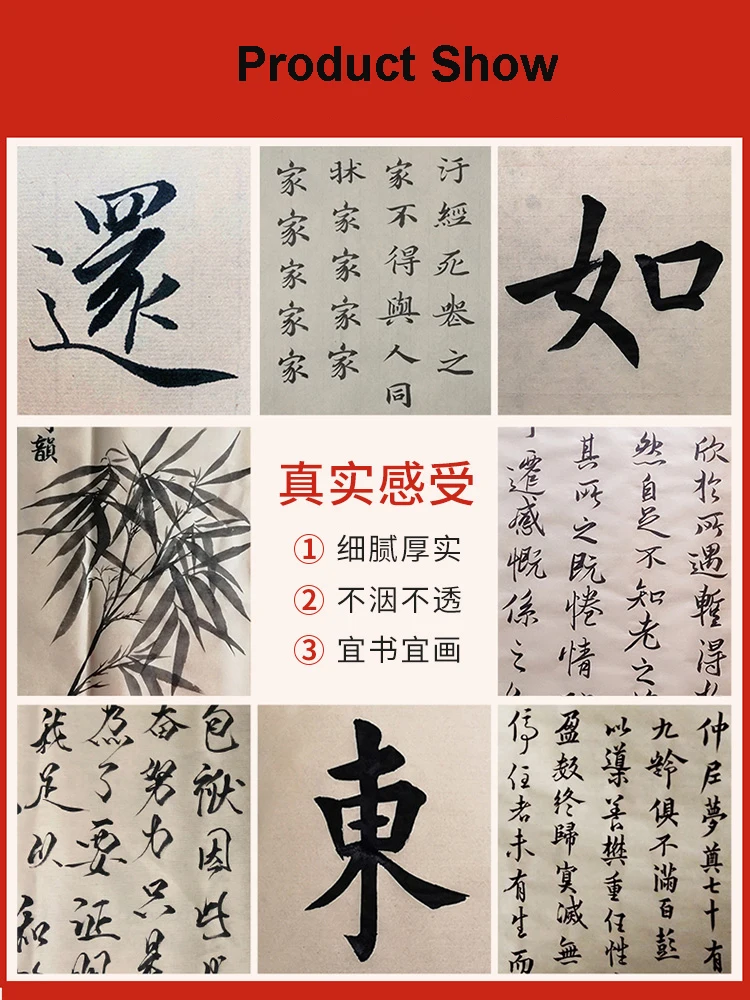 Product Show
還
汙經死喪之
家不得與人同
牀家家家家
家家家家家
如
韻
真实感受
① 细腻厚实
② 不洇不透
③ 宜书宜画
欣於所遇暫得
然自足不知老之
其所之既惓情
遷感慨係之
包袱因此
奋努力只是
为了要证明
我足以和
東
仲尼夢奠七十有
九齡俱不滿百彭
以導善樊重任性
盈数終歸冥滅無
停住者未有生而